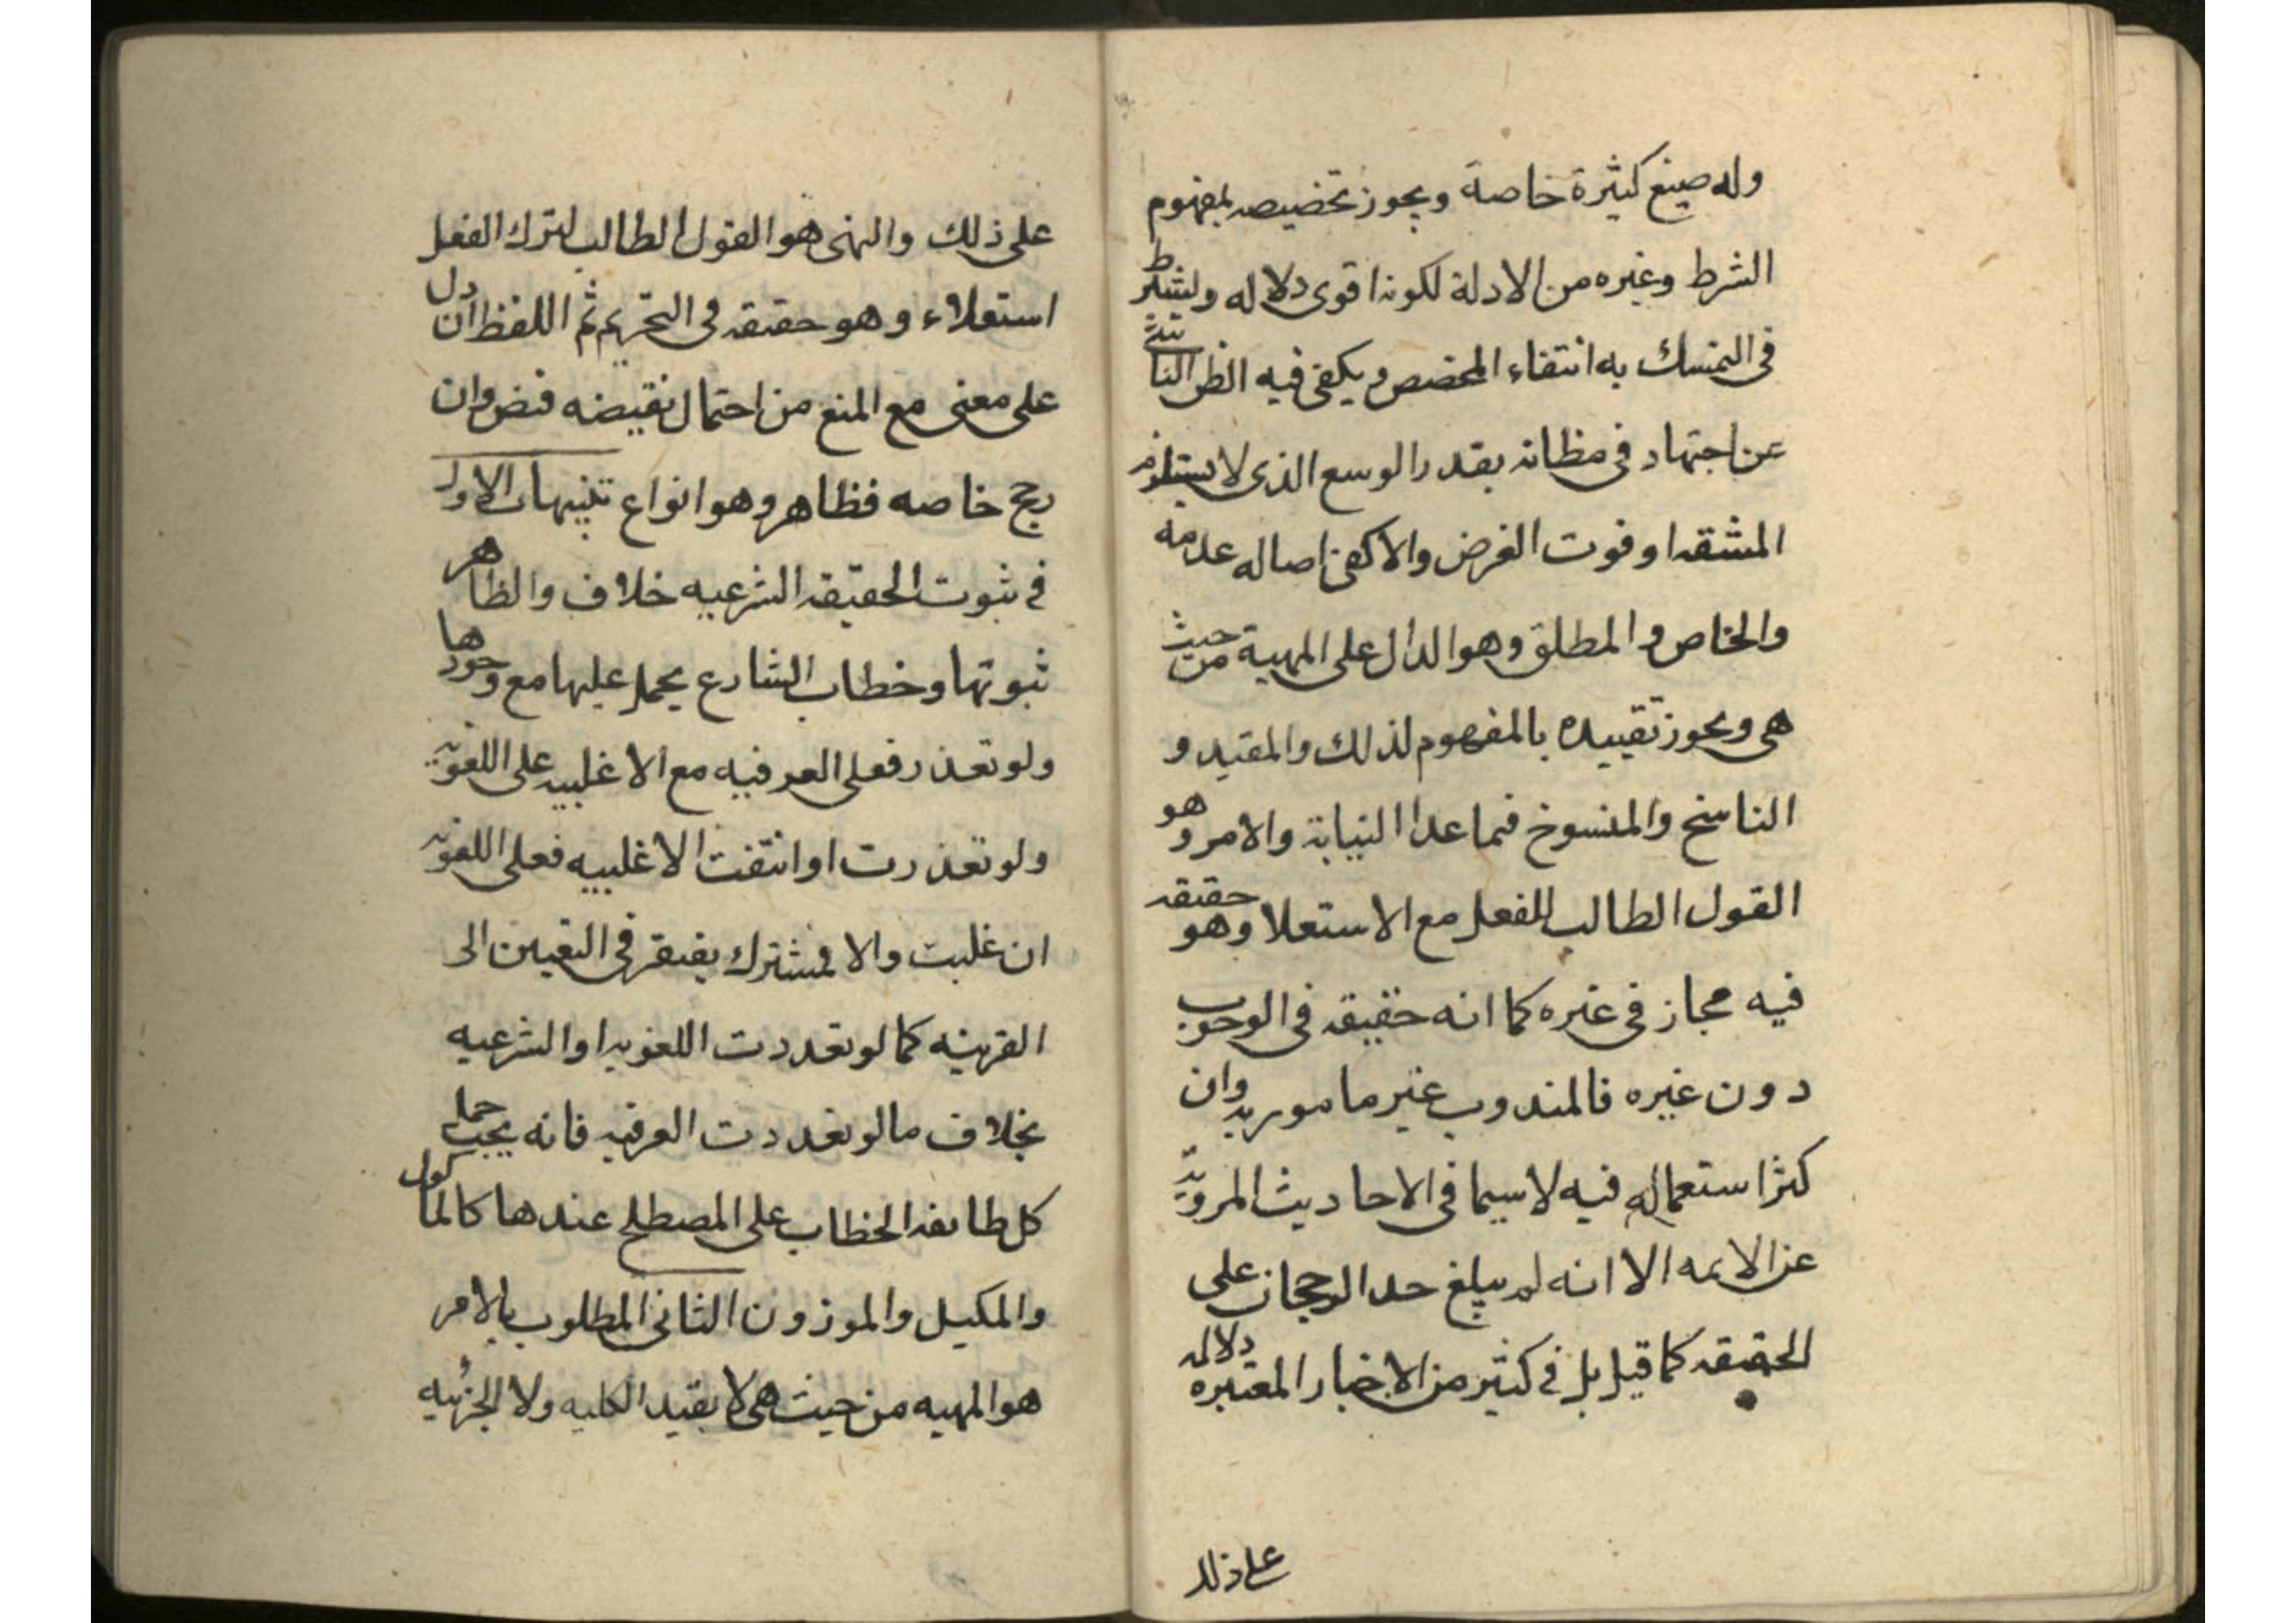 وله صيغ كثيرة خاصة ويجوز تخصيصه بمفهوم
الشرط وغيره من الادلة لكونه اقوى دلاله ويشترط
فى التمسك به انتفاء المخصص ويكفى فيه الظن الناشئ
عن اجتهاد فى مظانه بقدر الوسع الذى لا يستلزم
المشقه او فوت الغرض والا كفى اصاله عدمه
والخاص والمطلق وهو الدال على المهية من حيث
هى ويجوز تقييده بالمفهوم لذلك والمقيد و
الناسخ والمنسوخ فيما عدا النيابة والامر وهو
القول الطالب للفعل مع الاستعلا وهو حقيقه
فيه مجاز فى غيره كما انه حقيقه فى الوجوب
دون غيره فالمندوب غير مامور به وان
كثر استعماله فيه لا سيما فى الاحاديث المرويّة
عن الايمه الا انه لم يبلغ حد الرجحان على
الحقيقه كما قيل بل فى كثير من الاخبار المعتبره دلاله
على ذلك
على ذلك والنهى هو القول الطالب لترك الفعل
استعلاء وهو حقيقه فى التحريم ثم اللفظ ان دل
على معنى مع المنع من احتمال نقيضه فنص وان
رجح خاصه فظاهر وهو انواع تنبيهات الاول
فى ثبوت الحقيقه الشرعيه خلاف والظاهر
ثبوتها وخطاب الشارع يحمل عليها مع وجودها
ولو تعذر فعلى العرفيه مع الاغلبيه على اللغويه
ولو تعذرت او انتفت الاغلبيه فعلى اللغويه
ان غلبت والا فمشترك يفتقر فى التعيين الى
القرينه كما لو تعددت اللغويه او الشرعيه
بخلاف ما لو تعددت العرفيه فانه يجب حمل
كل طايفه الخطاب على المصطلح عندها كالماكول
والمكيل والموزون الثانى المطلوب بالامر
هو المهيه من حيث هى لا بقيد الكليه ولا الجزئيه